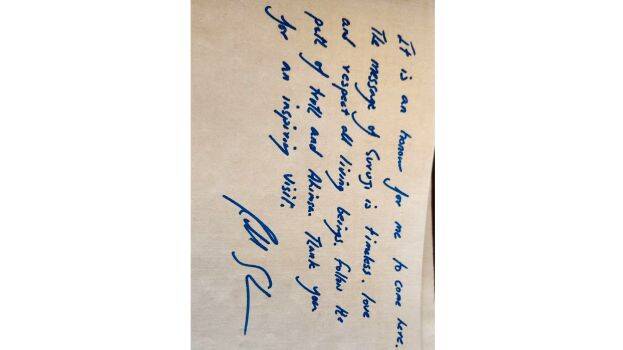 It is an honour for me to come here.
The message of Guruji is timeless. love
and respect all living beings. Follow the
path of truth and Ahimsa. Thank you
for an inspiring visit.